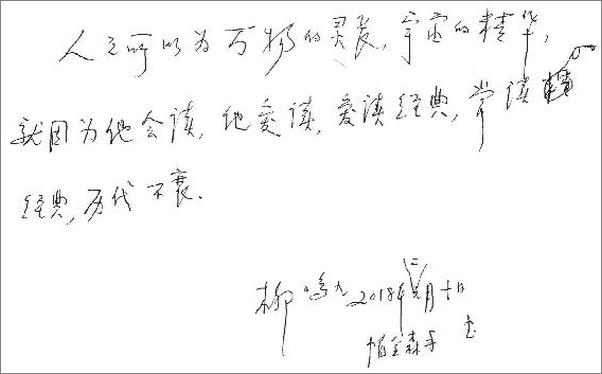 人之所以为万物的灵长，宇宙的精华，
就因为他会读，他爱读，爱读经典，常读
经典，历代不衰．
柳鸣九 2018年二月十日
帕金森手书